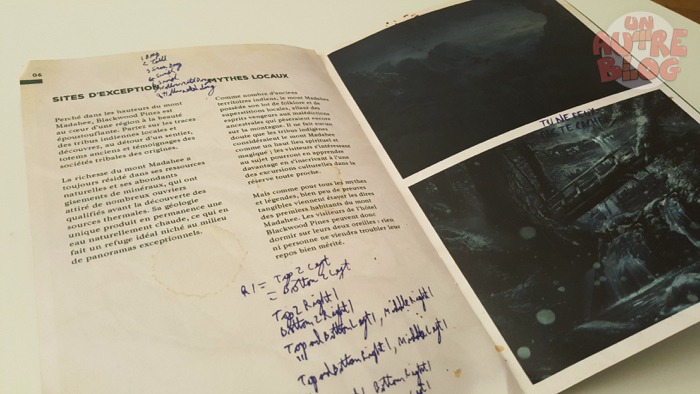 06
SITES D'EXCEPTION
MYTHES LOCAUX
Perché dans les hauteurs du mont
Madahee, Blackwood Pines
au cœur d'une région à la beauté
époustouflante. Partez sur les traces
des tribus indiennes locales et
découvrez, au détour d'un sentier,
totems anciens et témoignages des
sociétés tribales des origines.
La richesse du mont Madahee a
toujours résidé dans ses ressources
naturelles et ses abondants
gisements de minéraux, qui ont
attiré de nombreux ouvriers
qualifiés avant la découverte des
sources thermales. Sa géologie
unique produit en permanence une
eau naturellement chaude, ce qui en
fait un refuge idéal niché au milieu
de panoramas exceptionnels.
Comme nombre d'anciens
territoires indiens, le mont Madahee
possède son lot de folklore et de
superstitions locales, allant des
esprits vengeurs aux malédictions
ancestrales qui pèseraient encore
sur la montagne. Il ne fait aucun
doute que les tribus indigènes
considéraient le mont Madahee
comme un haut lieu spirituel et
magique ; les visiteurs s'intéressant
au sujet pourront en apprendre
davantage en s'inscrivant à l'une
des excursions culturelles dans la
réserve toute proche.
Mais comme pour tous les mythes
et légendes, bien peu de preuves
tangibles viennent étayer les dires
des premiers habitants du mont
Madahee. Les visiteurs de l'hôtel
Blackwood Pines peuvent donc
dormir sur leurs deux oreilles : rien
ni personne ne viendra troubler leur
repos bien mérité.
R1 = Top 2 Left
= Bottom 2 Left
Top 2 Right 1
Bottom 2 Right 1
Top and Bottom Left 1, Middle Right 1
Top and Bottom Right 1, Middle Left 1
UN
AUTRE
BLOG